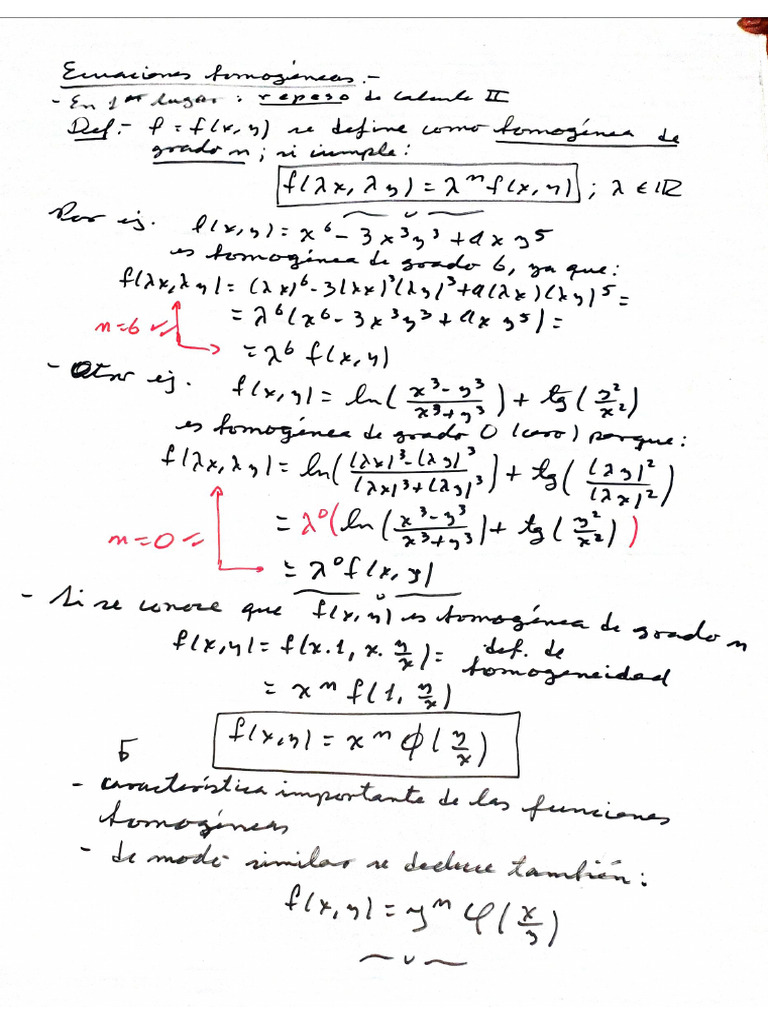 Ecuaciones homogéneas.-
- En 1er lugar: repaso de Calculo II
Def.- f = f(x,y) se define como homogénea de
grado n; si cumple:
f(λx, λy) = λ^n f(x,y) ; λ ∈ IR
Por ej. f(x,y) = x^6 - 3x^3y^3 + 9xy^5
es homogénea de grado 6, ya que:
f(λx,λy) = (λx)^6 - 3(λx)^3(λy)^3 + 9(λx)(λy)^5 =
= λ^6(x^6 - 3x^3y^3 + 9xy^5) =
n=6
= λ^6 f(x,y)
- Otro ej. f(x,y) = ln((x^3-y^3)/(x^3+y^3)) + tg(y^2/x^2)
es homogénea de grado 0 (cero) porque:
f(λx,λy) = ln(((λx)^3-(λy)^3)/((λx)^3+(λy)^3)) + tg((λy)^2/(λx)^2)
= λ^0(ln((x^3-y^3)/(x^3+y^3)) + tg(y^2/x^2))
n=0
= λ^0 f(x,y)
- Si se conoce que f(x,y) es homogénea de grado n
f(x,y) = f(x.1, x.y/x) = def. de homogeneidad
= x^n f(1, y/x)
f(x,y) = x^n ϕ(y/x)
- característica importante de las funciones
homogéneas
- de modo similar se deduce también:
f(x,y) = y^n φ(x/y)